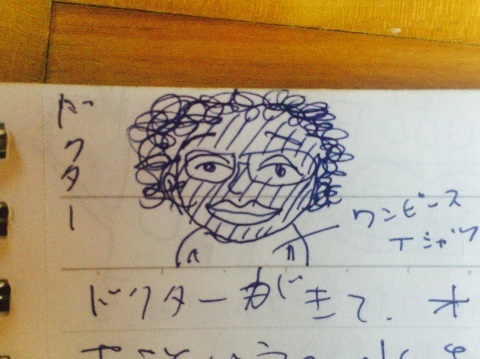 ドクター
ワンピース
Tシャツ
ドクターがきて、オ